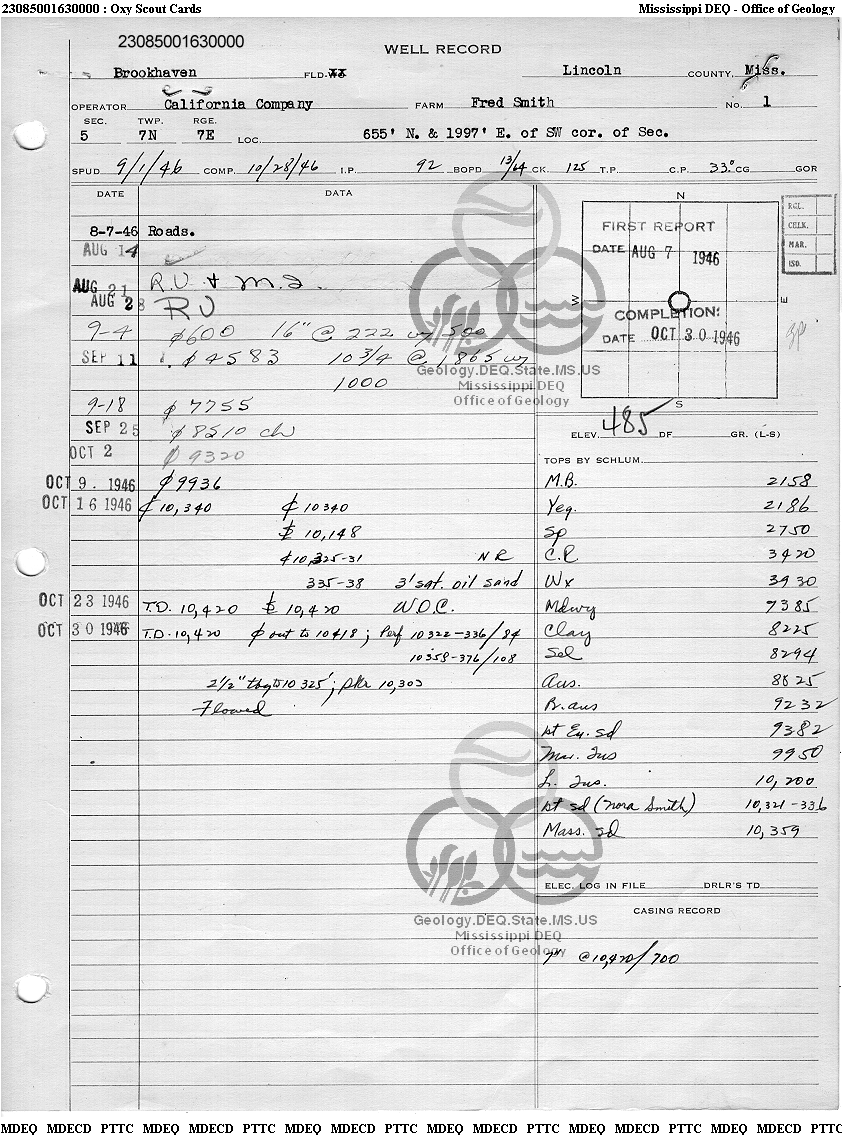 23085001630000 : Oxy Scout Cards Mississippi DEQ - Office of Geology
23085001630000
WELL RECORD
Brookhaven FLD. Lincoln COUNTY, Miss.
OPERATOR California Company FARM Fred Smith NO. 1
SEC. TWP. RGE.
5 7N 7E LOC. 655' N. & 1997' E. of SW cor. of Sec.
SPUD 9/1/46 COMP. 10/28/46 I.P. 92 BOPD 13/64 CK. 125 T.P. C.P. 33° CG GOR
DATE DATA
8-7-46 Roads.
AUG 14
AUG 21 R.U + m.I.
AUG 28 RU
9-4 ₵600 16" @ 222 w/ 500
SEP 11 ₵ 4583 10 3/4 @ 1,865 w/
1000
9-18 ₵ 7755
SEP 25 ₵ 8510 ch
OCT 2 ₵ 9320
OCT 9. 1946 ₵9936
OCT 16 1946 ₵ 10,340 ₵ 10340
10,148
₵10,325-31 NR
335-38 3' sat. oil sand
OCT 23 1946 T.D. 10,420 10,420 W.O.C.
OCT 30 1946 T.D. 10,420 ₵ out to 10418; Perf 10322-336/84
10358-376/108
2 1/2" tbg to 10325'; pkr 10,303
Flowed
N
W
E
S
FIRST REPORT
DATE AUG 7 1946
COMPLETION:
DATE OCT 30 1946
RGL.
CHLK.
MAR.
ISO.
ELEV. 485 DF GR. (L-S)
TOPS BY SCHLUM.
M.B. 2158
Yeg. 2186
Sp 2750
C.R. 3420
Wx 3930
Mdwy 7385
Clay 8225
Sel 8294
Aus. 8825
B. aus 9232
1st Eu. sd 9382
Mar. Tus 9950
L. Tus. 10,200
1st sd (Nora Smith) 10,321-336
Mass. sd 10,359
ELEC. LOG IN FILE DRLR'S TD
CASING RECORD
7" @10,420/700
Geology.DEQ.State.MS.US
Mississippi DEQ
Office of Geology
Geology.DEQ.State.MS.US
Mississippi DEQ
Office of Geology
MDEQ MDECD PTTC MDEQ MDECD PTTC MDEQ MDECD PTTC MDEQ MDECD PTTC MDEQ MDECD PTTC MDEQ MDECD PTTC